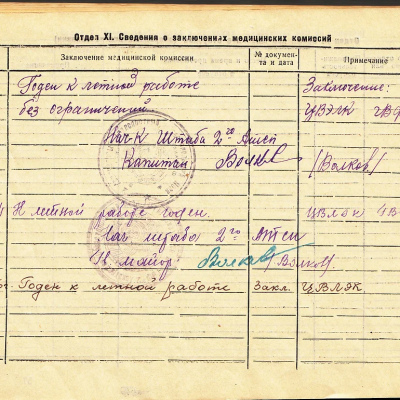 Отдел XI. Сведения о заключениях медицинских комиссий
Заключение медицинской комиссии
№ докумен-
та и дата
Примечание
Годен к летной работе
без ограничений.
Заключение:
ЦВЛК
Нач-к Штаба 2го
Капитан: Волков
/Волков/
К летной работе годен.
ЦВЛК
Нач штаба 2го
майор:
/Волков/
Годен к летной работе
Закл. ЦВЛЯК.